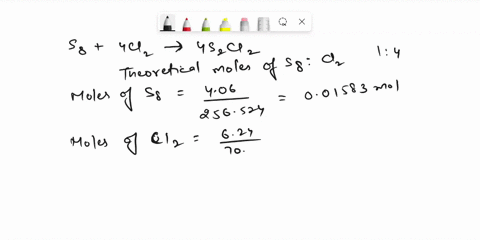 S8 + 4Cl2 → 4S2Cl2
Theoretical moles of S8 : Cl2 1:4
Moles of S8 = 4.06 / 256.524 = 0.01583 mol
Moles of Cl2 = 6.24 / 70.